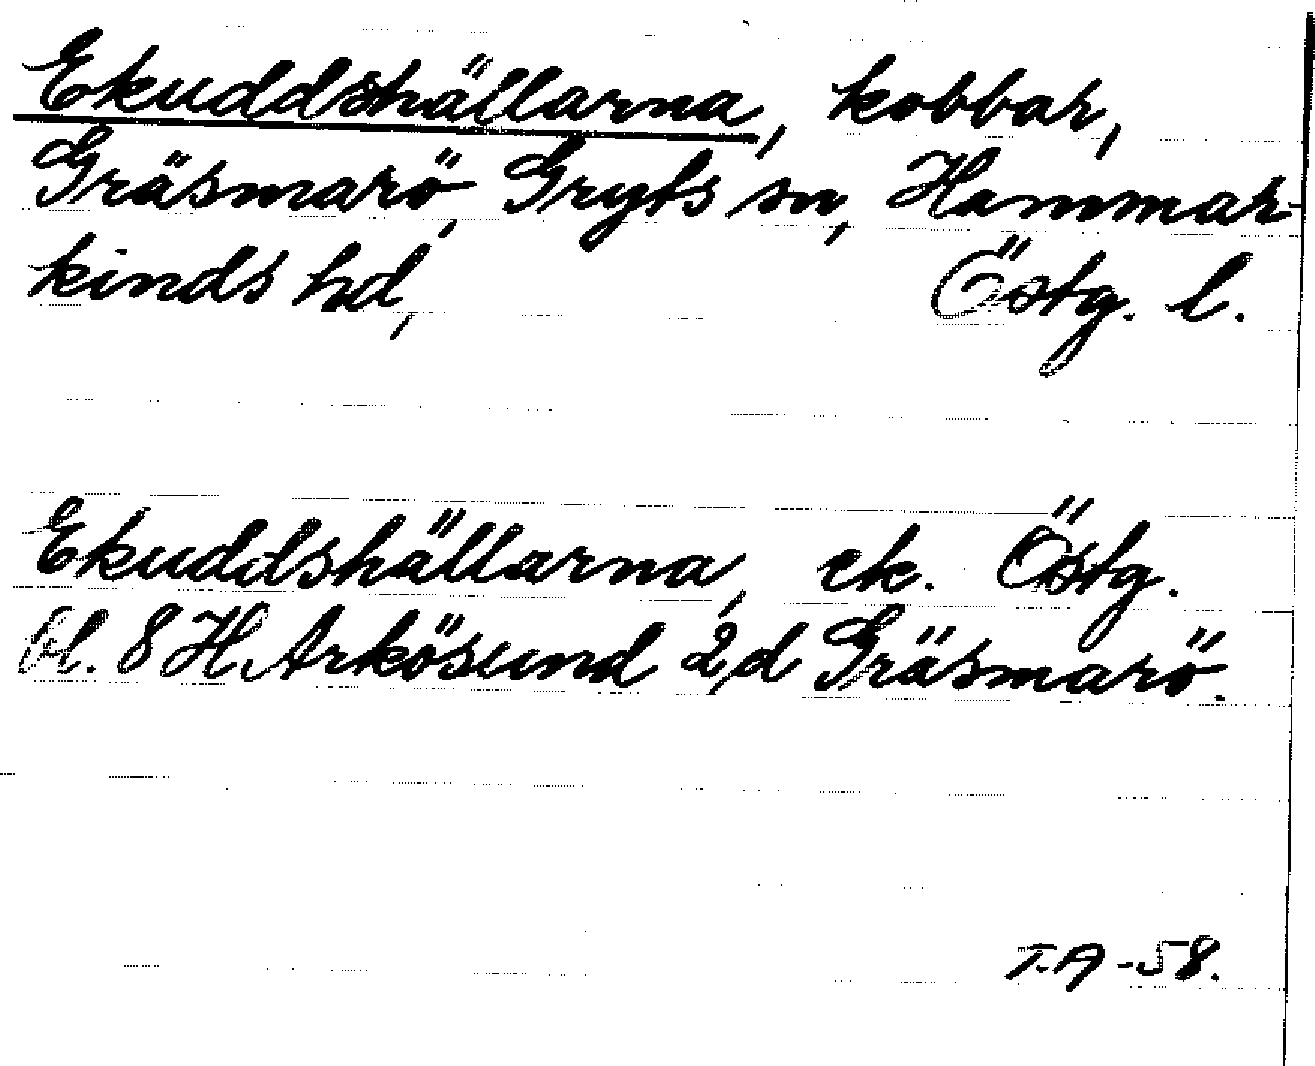 Ekuddshällarna, kobbar,
Gräsmarö, Gryts sn, Hammar-
kinds hd, Östg. l.
Ekuddshällarna, ek. Östg.
bl. 8 H. Arkösund 2,d Gräsmarö.
T.A -58.